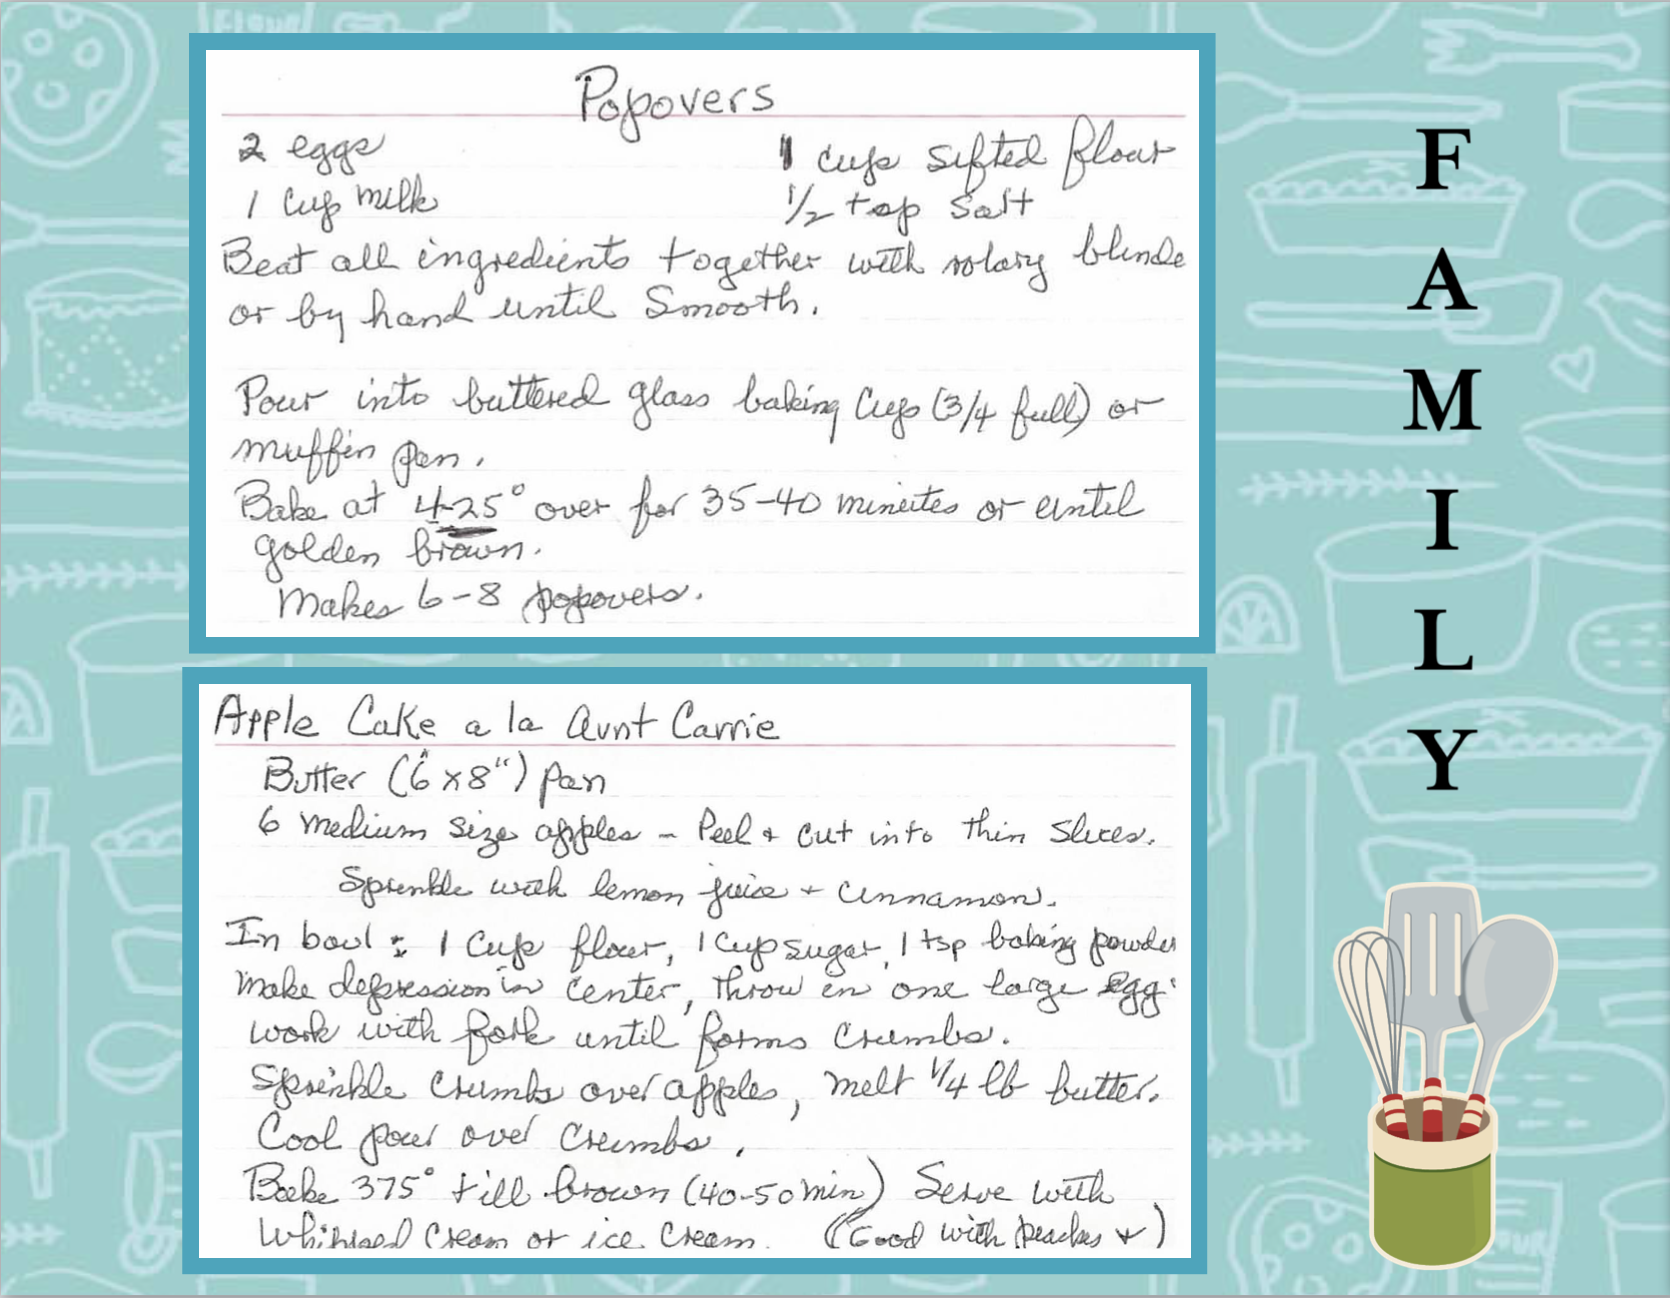 Popovers
2 eggs 1 cup sifted flour
1 cup milk 1/2 tsp salt
Beat all ingredients together with rotary blende
or by hand until Smooth.
Pour into buttered glass baking cups (3/4 full) or
muffin pan.
Bake at 425° over for 35-40 minutes or until
golden brown.
Makes 6-8 popovers.
Apple Cake a la Aunt Carrie
Butter (6 x 8") pan
6 medium size apples - Peel + cut into thin slices.
Sprinkle with lemon juice + cinnamon.
In bowl: 1 cup flour, 1 cup sugar, 1 tsp baking powder
make depression in center, throw in one large egg.
work with fork until forms crumbs.
Sprinkle crumbs over apples, melt 1/4 lb butter.
Cool pour over crumbs.
Bake 375° till brown (40-50 min) Serve with
Whipped cream or ice cream. (Good with peaches + )
FAMILY
FLOUR